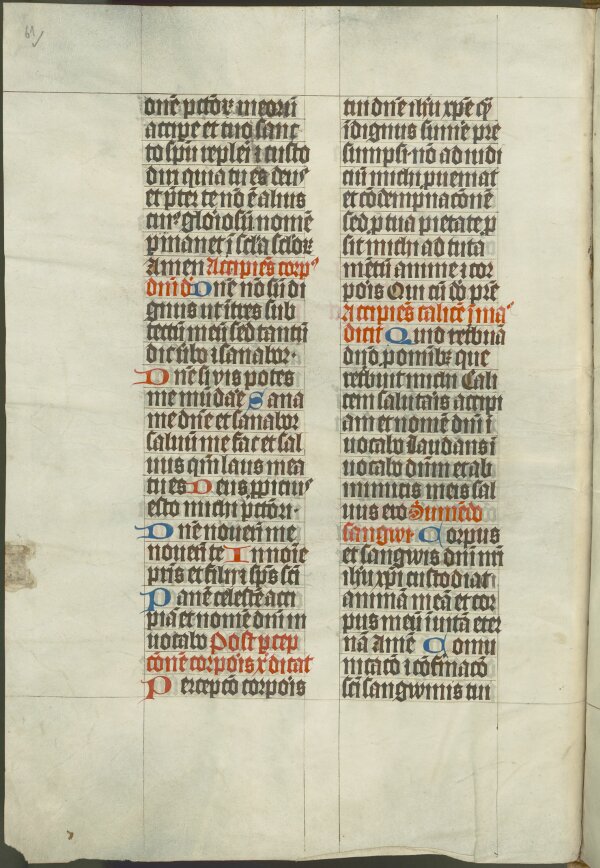 61
dn̄e p̄ctōꝝ meorū
accipe et tuo sanc
to sp̄u replēri custo
diri quia tu es deus
et p̄ter te nō ē alius
cui⁹ gl'oiosū nomē
p̄manet ī scl̄a scl̄oꝝ
Amen Accipiēs corp⁹
dn̄i dc̄ Dn̄e nō sū di
gnus ut ītres sub
tectū meū sed tantū
dic v̄bo ⁊ sanabor·
Dn̄e si vis potes
me mūdare Sana
me dn̄e et sanabor
saluū me fac et sal
uus quī laus mea
tu es Deus ꝓpicius
esto michi p̄ctōri·
Dn̄e nouerī me
nouerī te In noīe
pr̄is et filii ⁊ sp̄s sc̄i
Panē celestē acci
piā et nomē dn̄i in
uocabo Post ꝑcep
cōnē corpoīs x̄ dicat
Percepcō corpoīs
tui dn̄e ih̄u xp̄e q̄
īdignus sumē pre
sumpsi nō ad iudi
ciū michi ꝓueniat
et cōdempnacōnē
sed ꝓ tua pietate ꝓ
sit michi ad tuta
mētū anime ⁊ cor
pois Qui cū dō pr̄e
Accipiēs calicē ī ma⁹
dicit Quid retribuā
dn̄o ꝓ omībꝫ que
retribuit michi Cali
cem salutaīs accipi
am et nomē dn̄i ī
uocabo Laudans ī
uocabo dn̄m et ab
inimicis meis sal
uus ero Sumēdo
sangwī Corpus
et sangwis dn̄i nr̄i
ih̄u xp̄i custodiat
animā meā et cor
pus meū ī uitā eter
nā Amē Comu
nicacō ⁊ cōfirmacō
sc̄i sangwinis tui